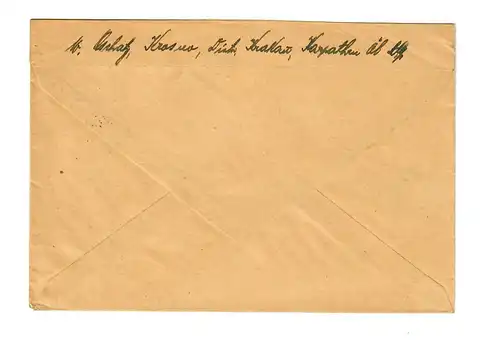 Krosno, Distr. Krakau, Karpathen Öl AG